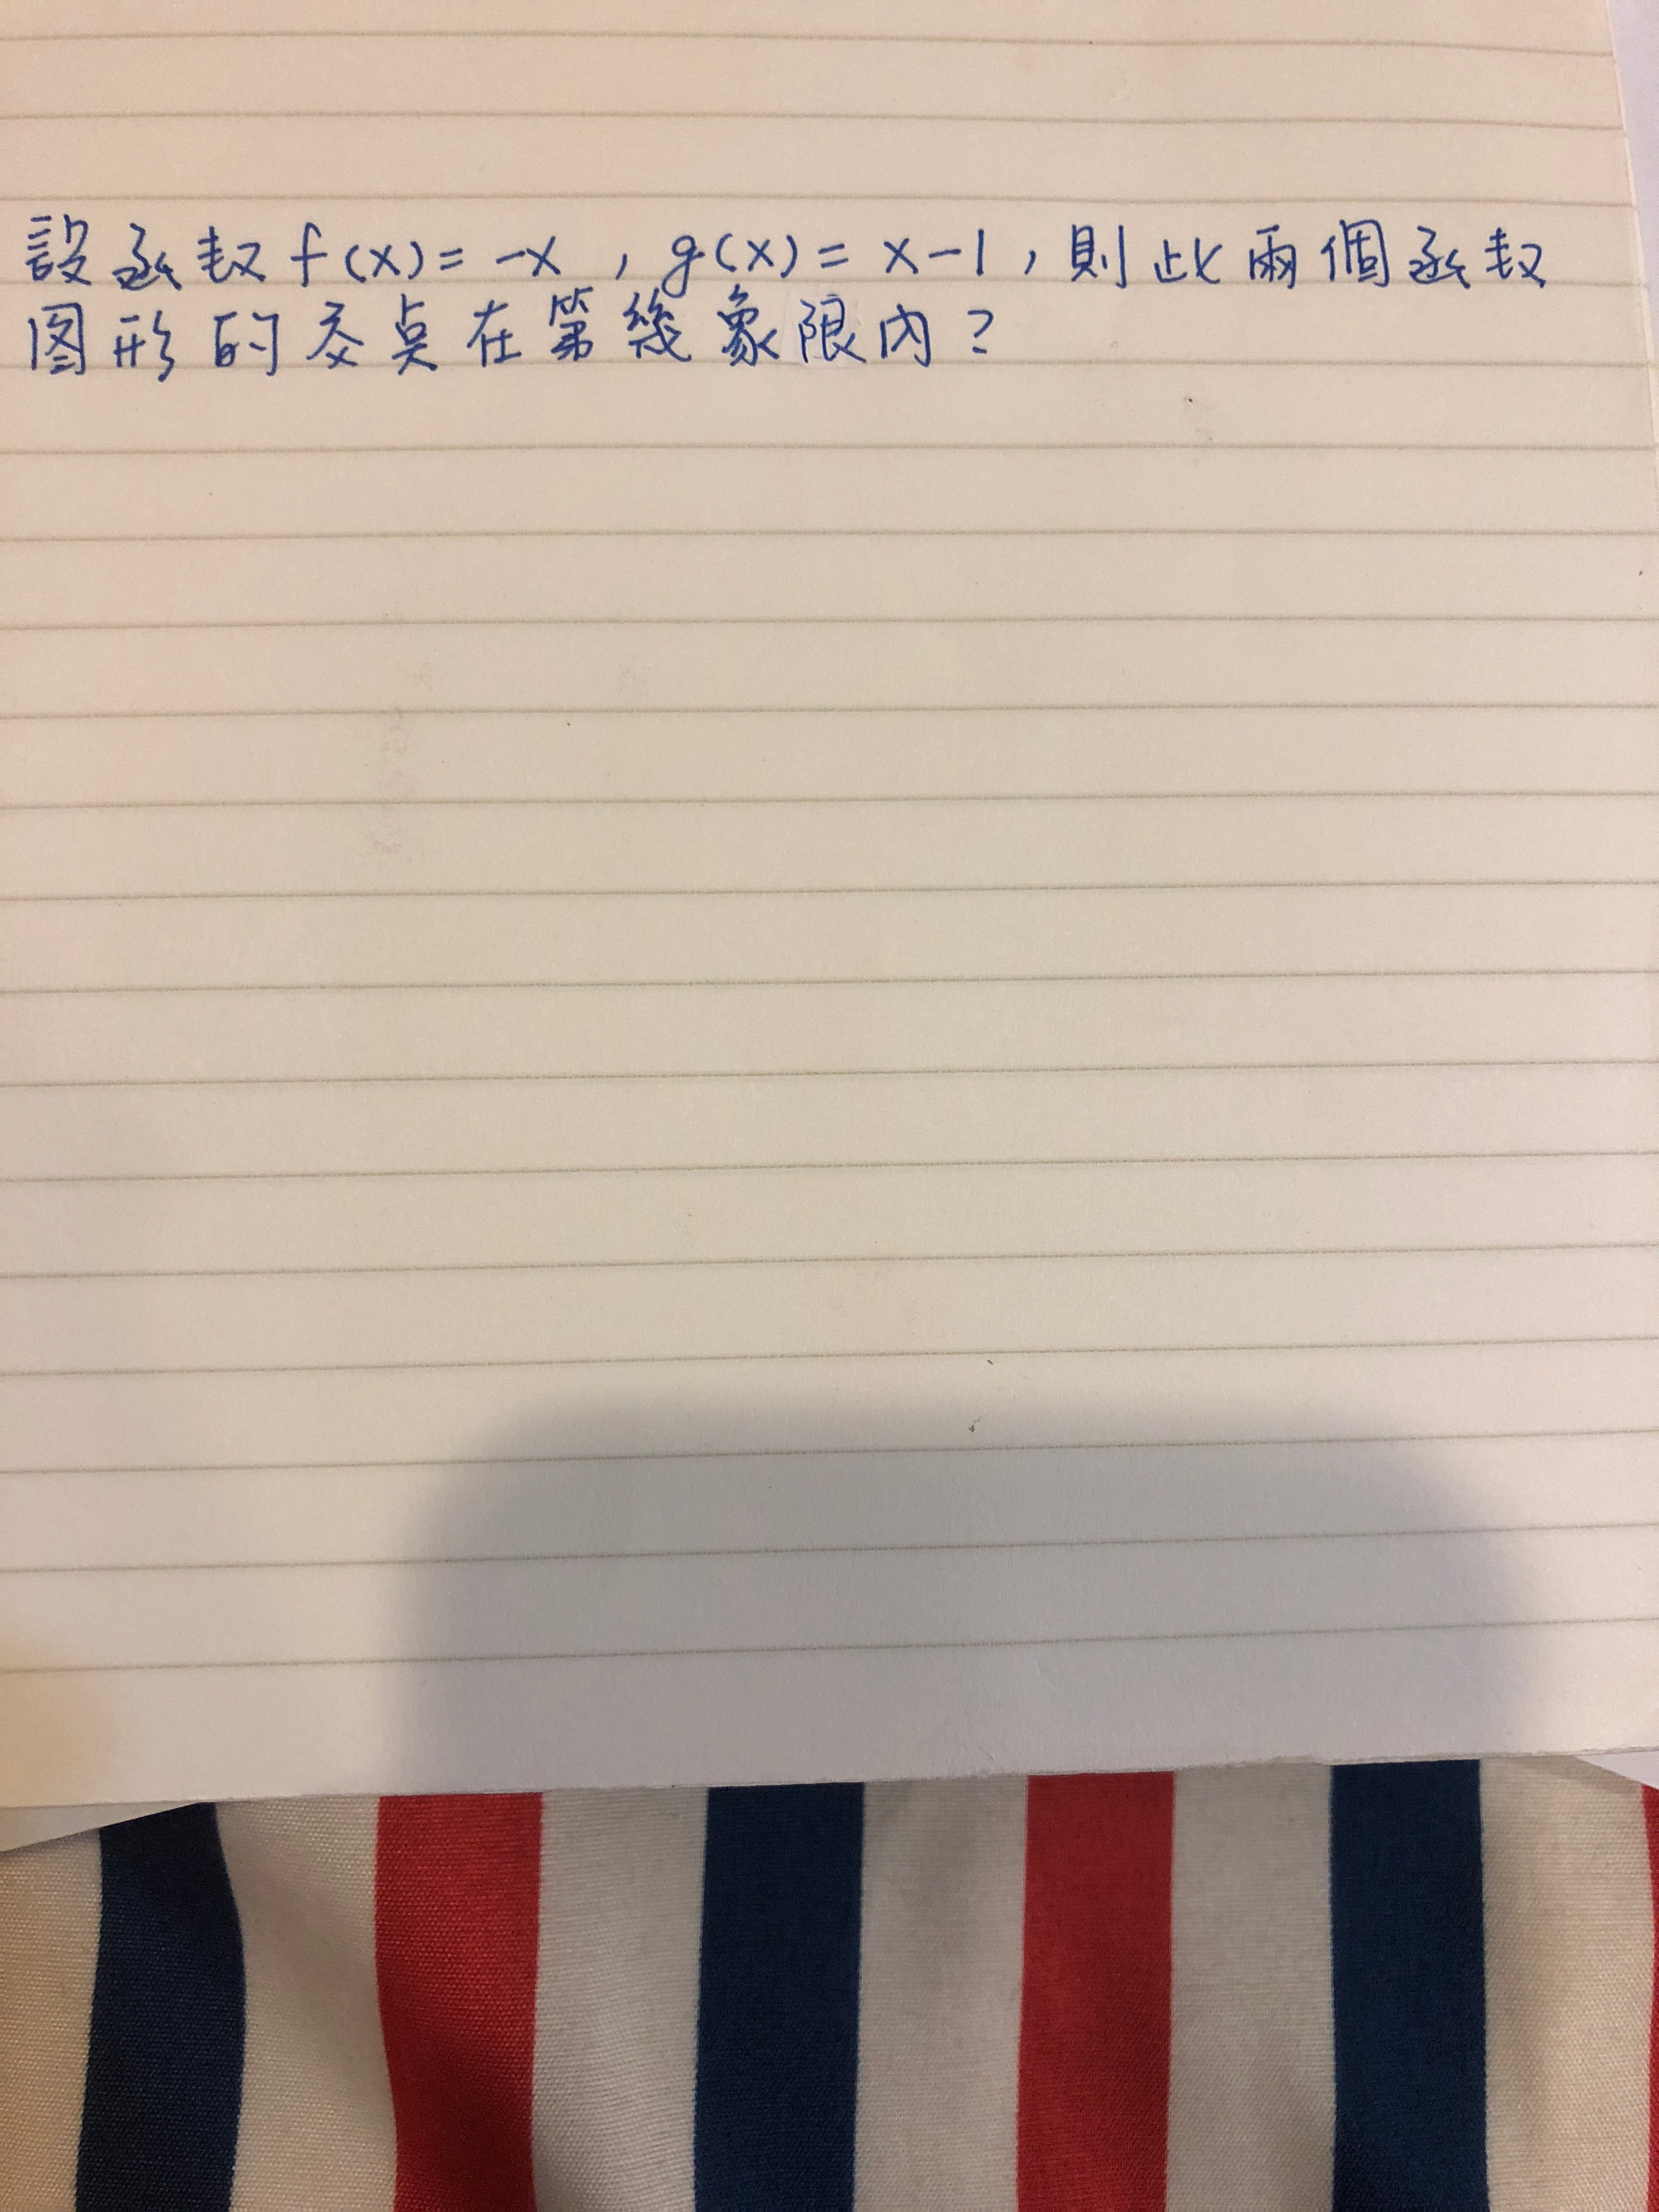 設函数 f(x) = -x , g(x) = x-1 , 則此兩個函数
图形的交点在第幾象限內?